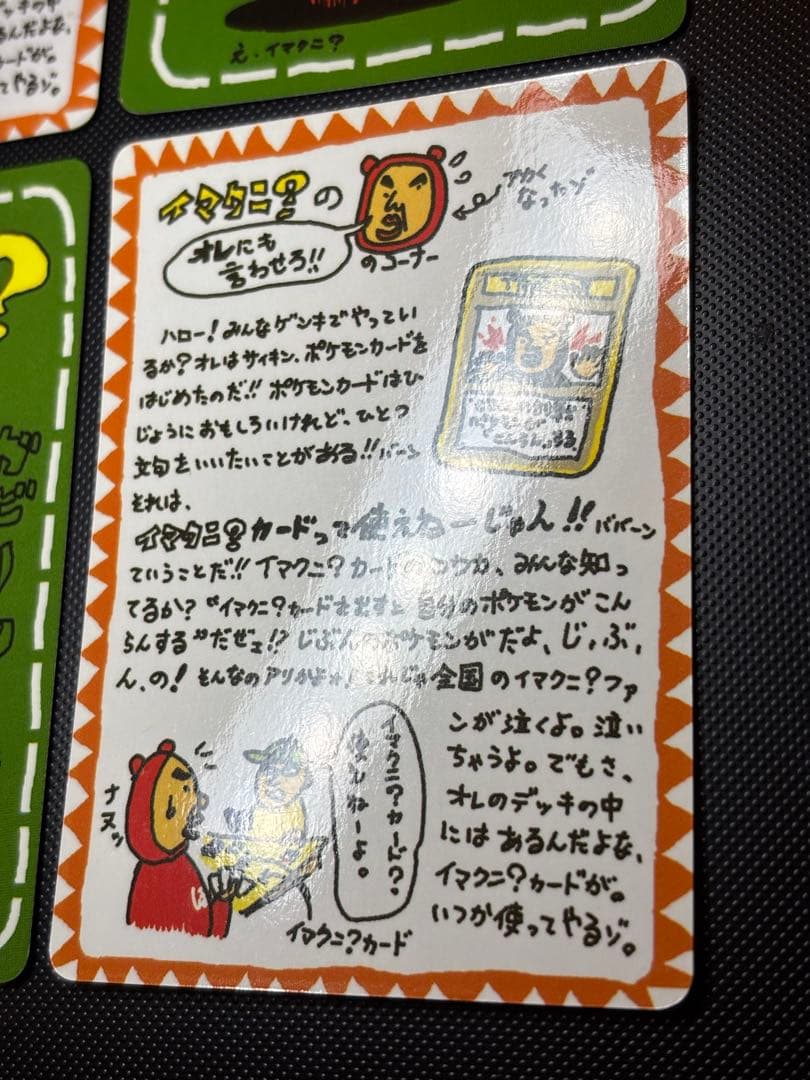 え、イマクニ?
イマクニ?の
オレにも
言わせろ!!
のコーナー
アカく
なったゾ
ハロー!みんなゲンキでやってい
るか?オレはサイキン、ポケモンカードを
はじめたのだ!!ポケモンカードはひ
じょうにおもしろいけれど、ひとつ
文句をいいたいことがある!!バーン
それは、
イマクニ?カードって使えねーじゃん!!ババーン
ていうことだ!!イマクニ?カードのコウカ、みんな知っ
てるか?“イマクニ?カードをおすと自分のポケモンがこん
らんする”だぜェ!?じぶんのポケモンがだよ、じ、ぶ、
ん、の!そんなのアリかよォ!それじゃ全国のイマクニ?ファ
ンが泣くよ。泣い
ちゃうよ。でもさ、
オレのデッキの中
にはあるんだよな、
イマクニ?カードが。
いつか使ってやるゾ。
イマクニ?カード?
使えねーよ。
ナヌッ
イマクニ?カード